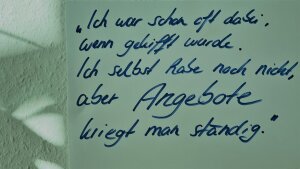 „Ich war schon oft dabei,
wenn gekifft wurde.
Ich selbst habe noch nicht,
aber Angebote
kriegt man ständig."